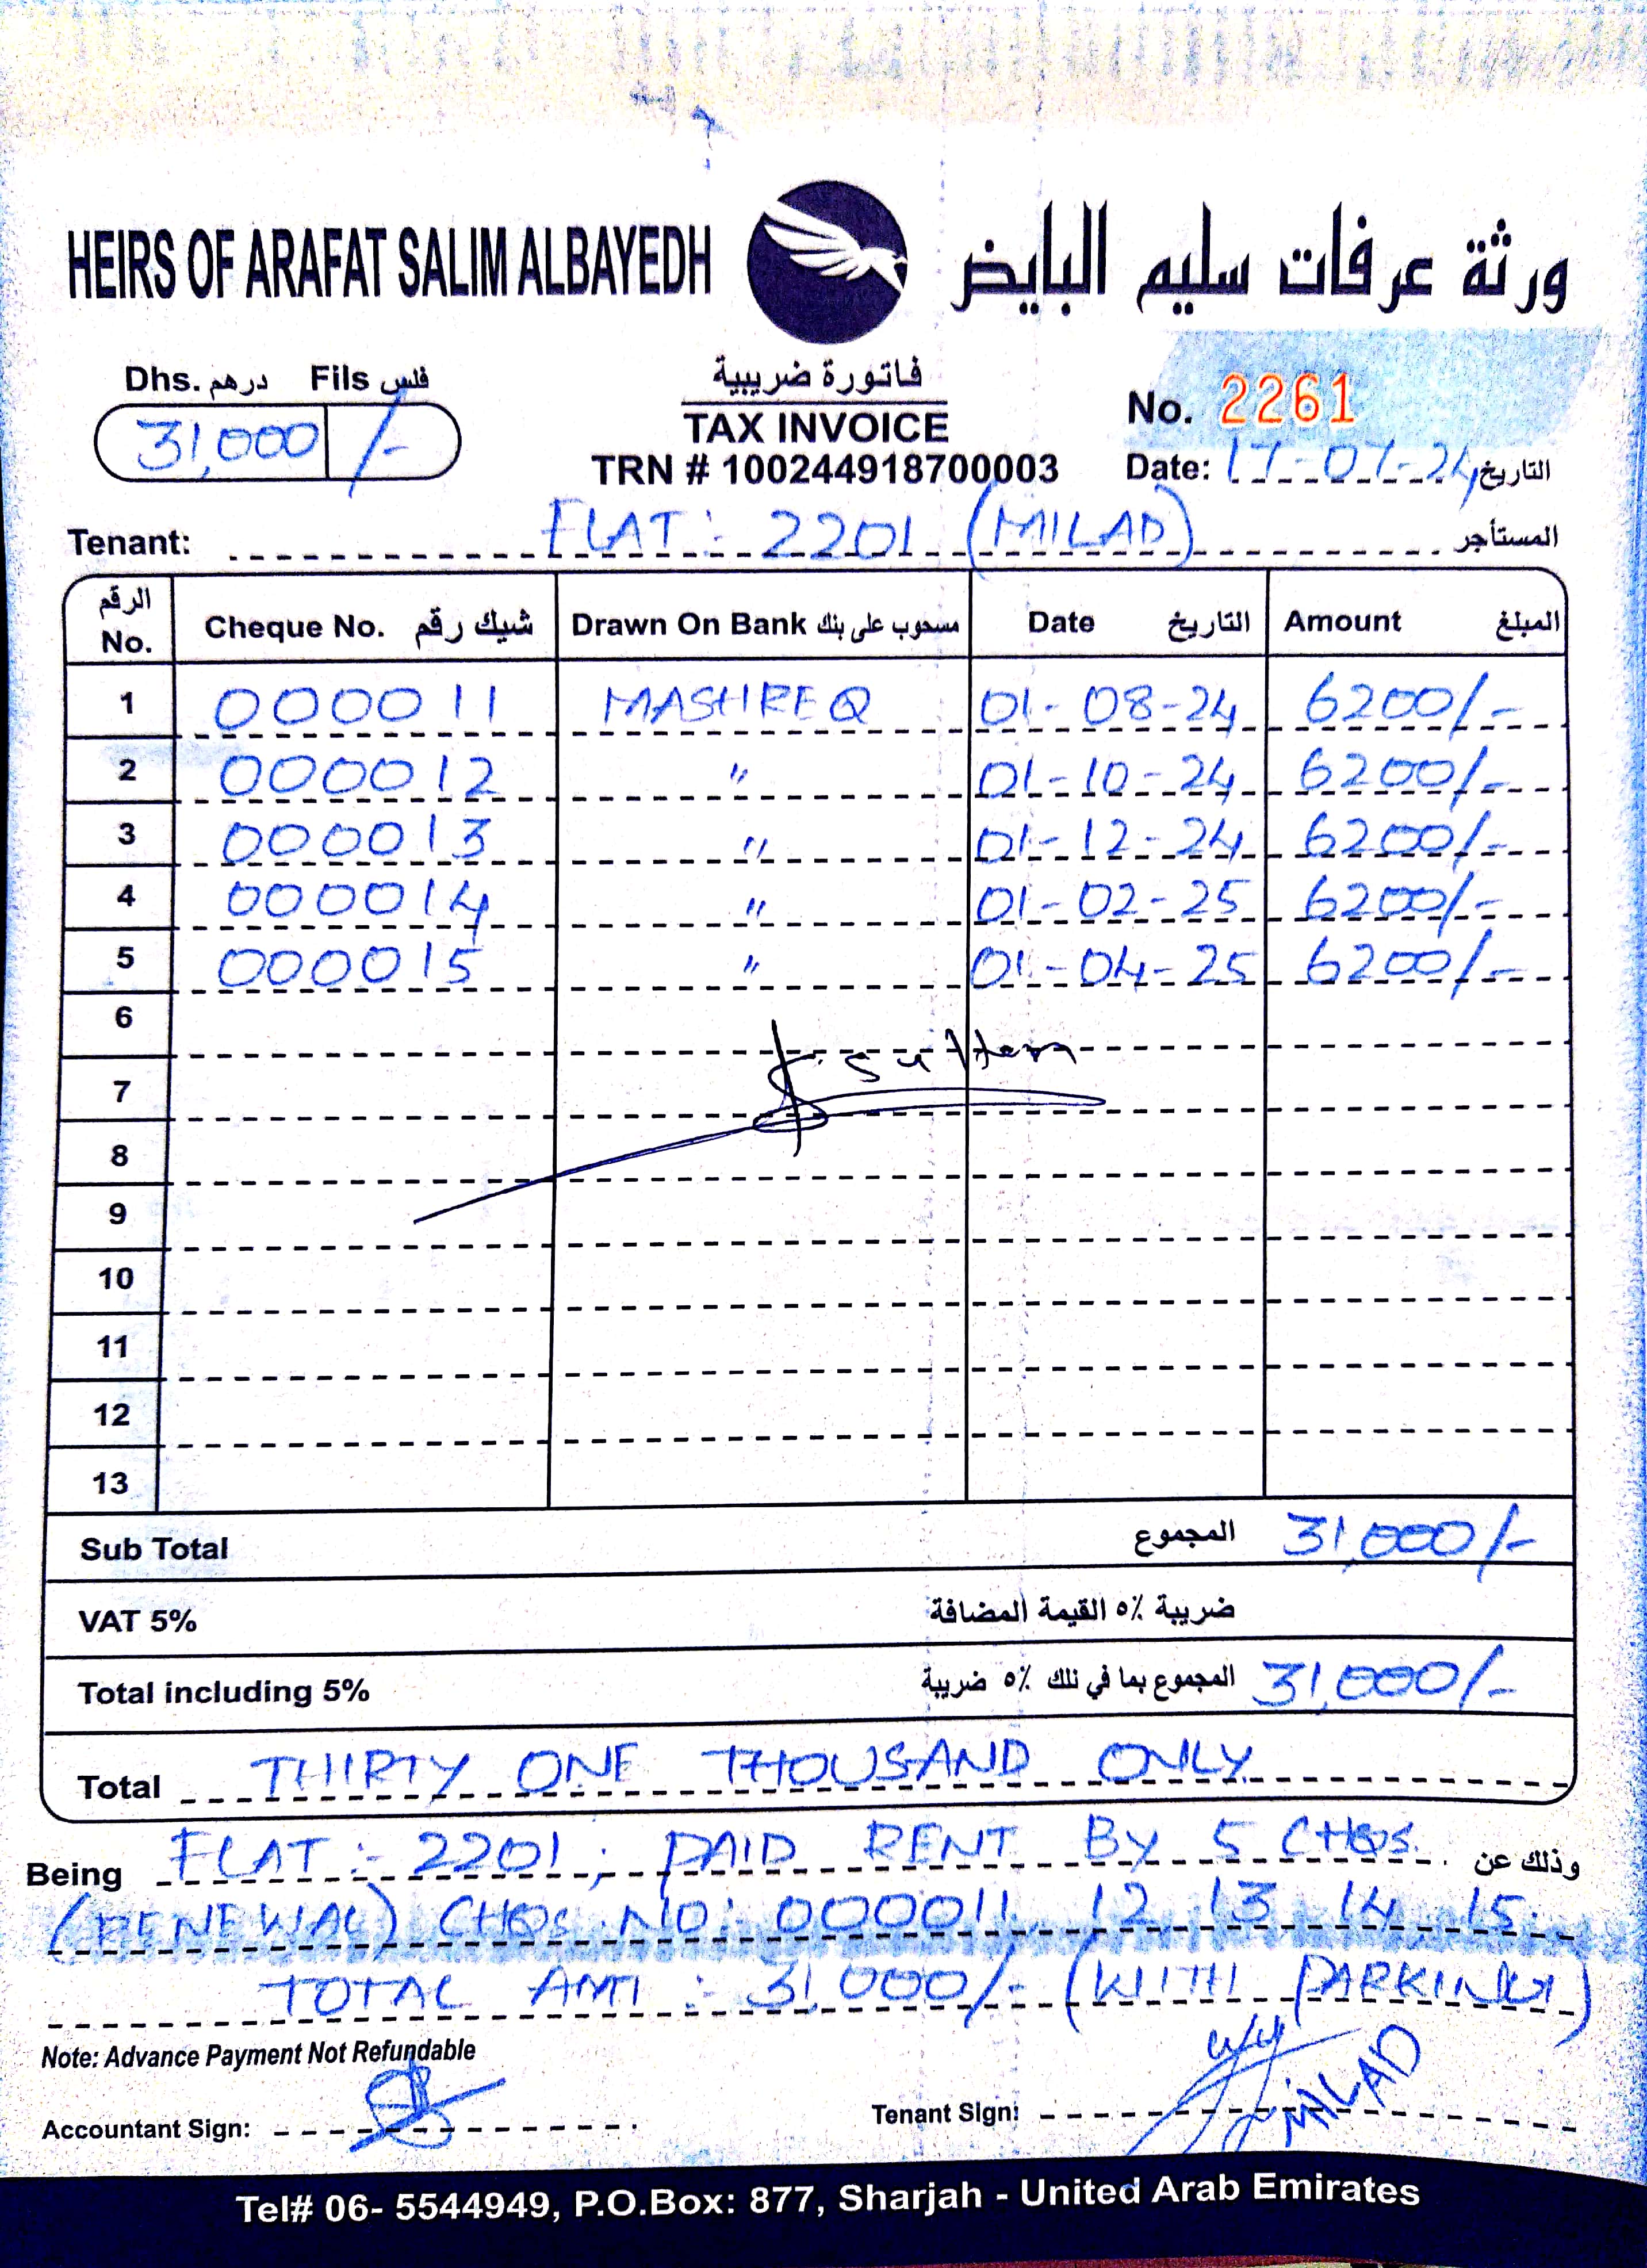 HEIRS OF ARAFAT SALIM ALBAYEDH ورثة عرفات سليم البايض
Dhs. درهم Fils فلس
31,000 /-
فاتورة ضريبية
TAX INVOICE
TRN # 100244918700003
No. 2261
Date: 17-07-24 التاريخ
Tenant: FLAT: 2201 (MILAD) المستأجر
الرقم No. Cheque No. شيك رقم Drawn On Bank مسحوب على بنك Date التاريخ Amount المبلغ
1 000011 MASHREQ 01-08-24 6200/-
2 000012 " 01-10-24 6200/-
3 000013 " 01-12-24 6200/-
4 000014 " 01-02-25 6200/-
5 000015 " 01-04-25 6200/-
6
7
8
9
10
11
12
13
Sub Total المجموع 31,000/-
VAT 5% ضريبة ٥٪ القيمة المضافة
Total including 5% المجموع بما في ذلك ٥٪ ضريبة 31,000/-
Total THIRTY ONE THOUSAND ONLY
Being FLAT:- 2201, PAID RENT BY 5 CHQS. وذلك عن
(RENEWAL) CHQS. NO: 000011, 12, 13, 14, 15.
TOTAL AMT : 31,000/- (WITH PARKING)
Note: Advance Payment Not Refundable
Accountant Sign:
Tenant Sign: MILAD
Tel# 06- 5544949, P.O.Box: 877, Sharjah - United Arab Emirates